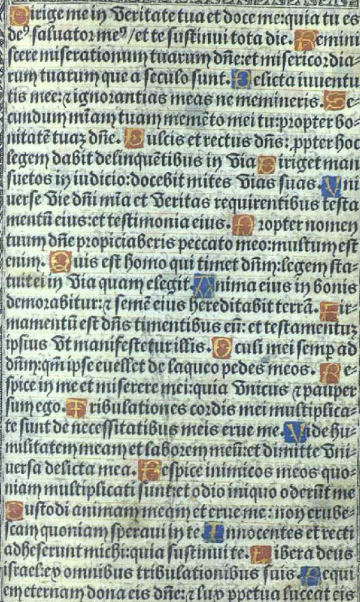 Dirige me in Veritate tua et doce me: quia tu es
deꝰ saluator meꝰ / et te sustinui tota die. Remini
scere miserationum tuarum dñe: et misericordia
rum tuarum que a seculo sunt. Delicta iuuentu
tis mee: ⁊ ignorantias meas ne memineris. Se
cundum miam tuam memēto mei tu: propter bo-
nitatē tuaȝ dñe. Dulcis et rectus dñs: ꝓpter hoc
legem dabit delinquētibus in Via Diriget man
suetos in iudicio: docebit mites Vias suas. Vni
uerse Vie dñi mia et Veritas requirentibus testa
mentū eius: et testimonia eius. Propter nomen
tuum dñe propiciaberis peccato meo: multum est
enim. Quis est homo qui timet dñm: legem sta-
tuit ei in Via quam elegit. Anima eius in bonis
demorabitur: ⁊ semē eius hereditabit terrā. Fir
mamentū est dñs timentibus eū: et testamentū
ipsius Vt manifestetur illis. Oculi mei semp ad
dñm: qm ipse euellet de laqueo pedes meos. Re-
spice in me et miserere mei: quia Vnicus ⁊ pauper
sum ego. Tribulationes cordis mei multiplica-
te sunt de necessitatibus meis erue me. Vide hu-
militatem meam et laborem meū: et dimitte Vni-
uersa delicta mea. Respice inimicos meos quo-
niam multiplicati sunt: et odio iniquo oderūt me
Custodi animam meam et erue me: non erube-
scam quoniam speraui in te Innocentes et recti
adheserunt michi: quia sustinui te. Libera deus
israel: ex omnibus tribulationibus suis Requi
em eternam dona eis dñe: ⁊ lux ppetua luceat eis